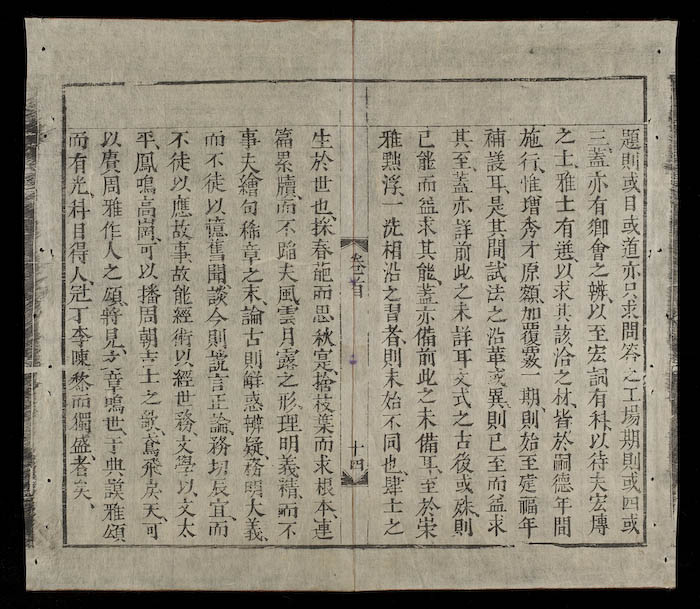 題則或目或道亦只求問答之工場期則或四或
三蓋亦有鄉會之辨以至宏詞有科以待夫宏博
之士雅士有選以求其該洽之材皆於嗣德年間
施行惟增秀才原額加覆覈一期則始至建福年
補議耳是其間試法之沿革或異則已至而益求
其至蓋亦詳前此之未詳耳文式之古後或殊則
已能而益求其能蓋亦備前此之未備耳至於崇
雅黜浮一洗相沿之習者則未始不同也肆士之
卷之首
十四
生於世也採春葩而思秋寔捨枝葉而求根本連
篇累牘而不蹈夫風雲月露之形理明義精而不
事夫繪句絺章之末論古則鮮惑辨疑務明大義
而不徒以憶舊聞談今則讜言正論務切辰宜而
不徒以應故事故能經術以經世務文學以文太
平鳳鳴高崗可以播周朝吉士之歌鳶飛戾天可
以賡周雅作人之頌將見文章鳴世于典謨雅頌
而有光科目得人冠丁李陳黎而獨盛者矣